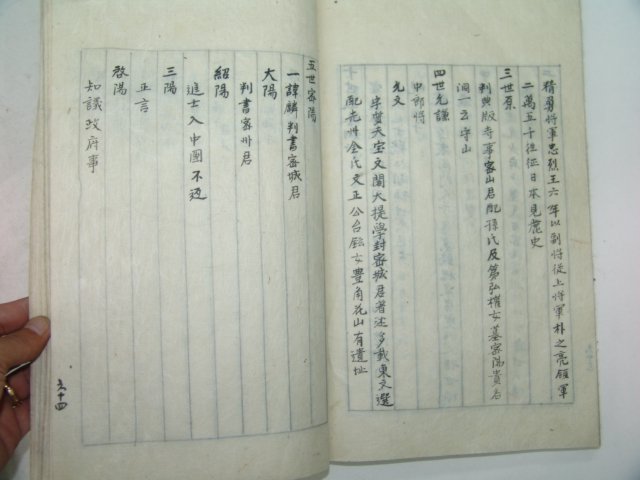 精勇將軍忠烈王六年以副將從上將軍朴之亮領軍
二萬五千往征日本見麗史
三世原
判典版寺事密山君配孫氏及第弘權女墓密陽貴名
洞一云守山
四世允謙
中郎將
允文
字質夫宝文閣大提學封密城君著述多載東文選
配光州金氏文正公台鉉女豊角花山有遺址
五世密陽
一諱麟判書密城君
大陽
判書密州君
紹陽
進士入中國不返
三陽
正言
啓陽
知議政府事
六十四